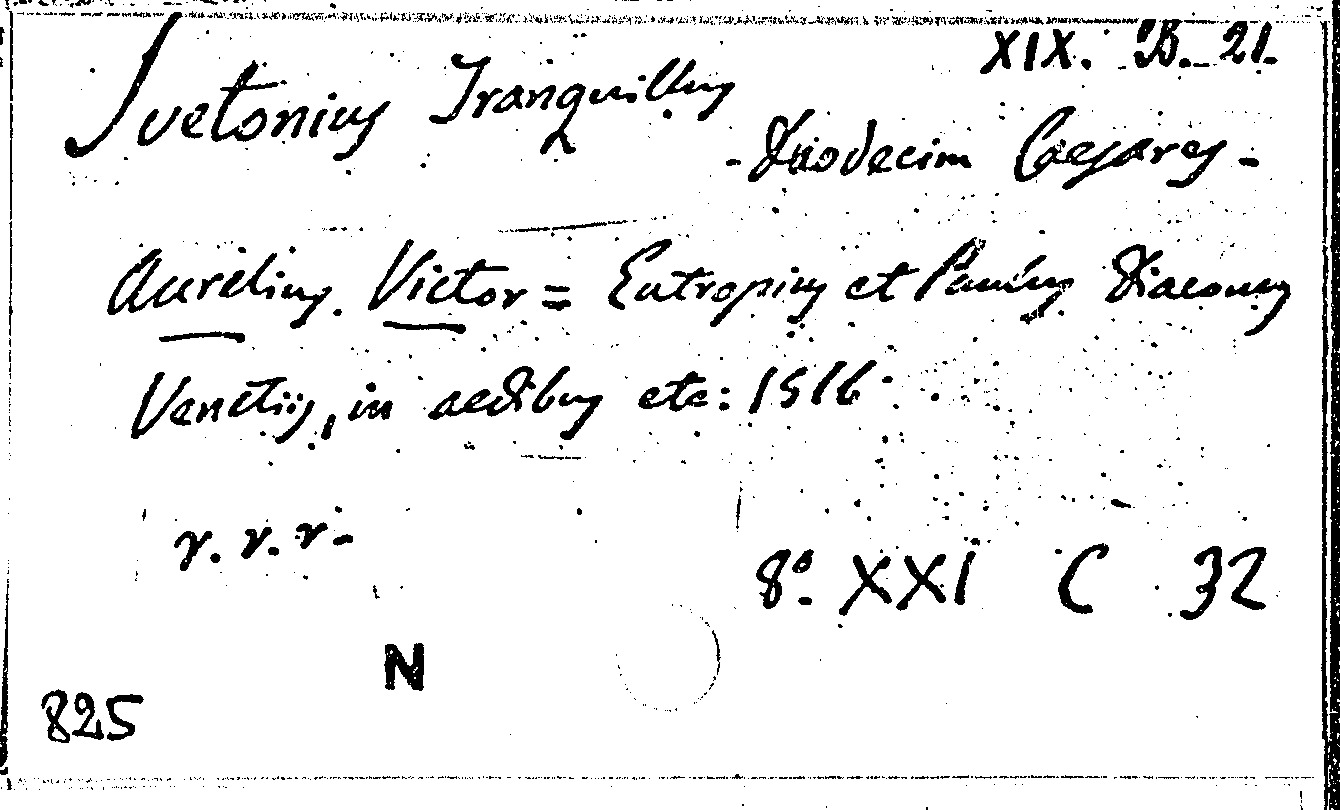 XIX. B. 21.
Svetonius Tranquillus
- Duodecim Caesares -
Aurelius. Victor = Eutropius et Paulus Diaconus
Venetiis, in aedibus etc: 1516
r. r. r.
8º. XXI C 32
N
825